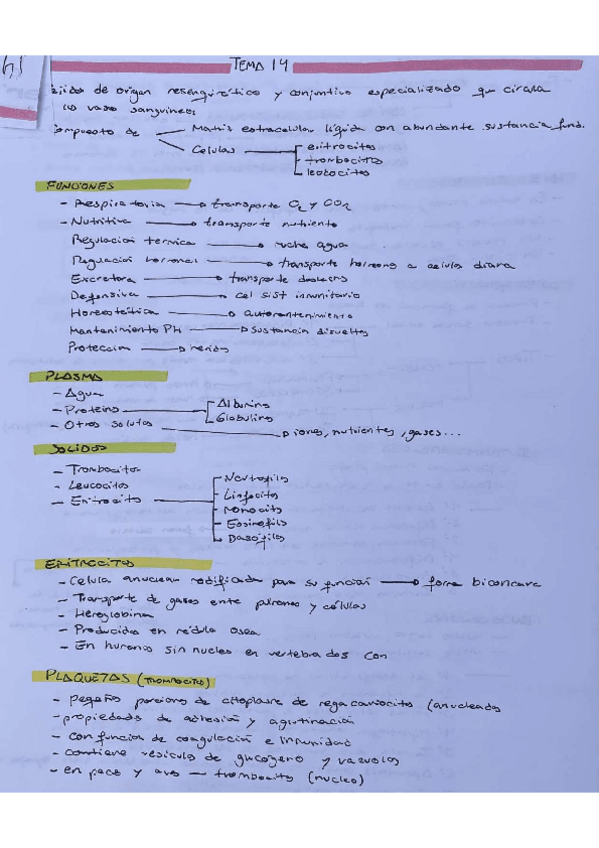 TEMA 14
Tejido de origen mesenquimático y conjuntivo especializado que circula
vaso sanguineos
Compuesto de Matriz extracelular líquida con abundante sustancia fund.
Celulas eritrocitos
trombocitos
leucocitos
FUNCIONES
- Respiratoria → transporte O2 y CO2
- Nutritiva → transporte nutriente
Regulacion termica → mucha agua
Regulacion hormonal → transporte hormona a celula diana
Excretora → transporte desechos
Defensiva → cel sist inmunitario
Homeostática → automantenimiento
Mantenimiento PH → sustancia disueltas
Proteccion → heridas
PLASMA
- Agua
- Proteina Albumina
Globulina
- Otros solutos → iones, nutrientes, gases...
SOLIDOS
- Trombocitos
- Leucocitos
- Eritrocito - Neutrofilo
- Linfocito
- Monocito
- Eosinofilo
- Basofilo
ERITROCITOS
- Celula anuclear modificada para su funcion → forma biconcava
- Transporte de gases entre pulmones y células
- Hemoglobina
- Producidos en médula osea
- En humanos sin nucleo en vertebrados con
PLAQUETAS (TROMBOCITOS)
- pequeñas porciones de citoplasma de megacariocito (anucleadas
- propiedades de adhesion y aglutinación
- con funcion de coagulación e inmunidad
- contiene vesicula de glucogeno y vacuolas
- en peces y aves — trombocito (nucleo)